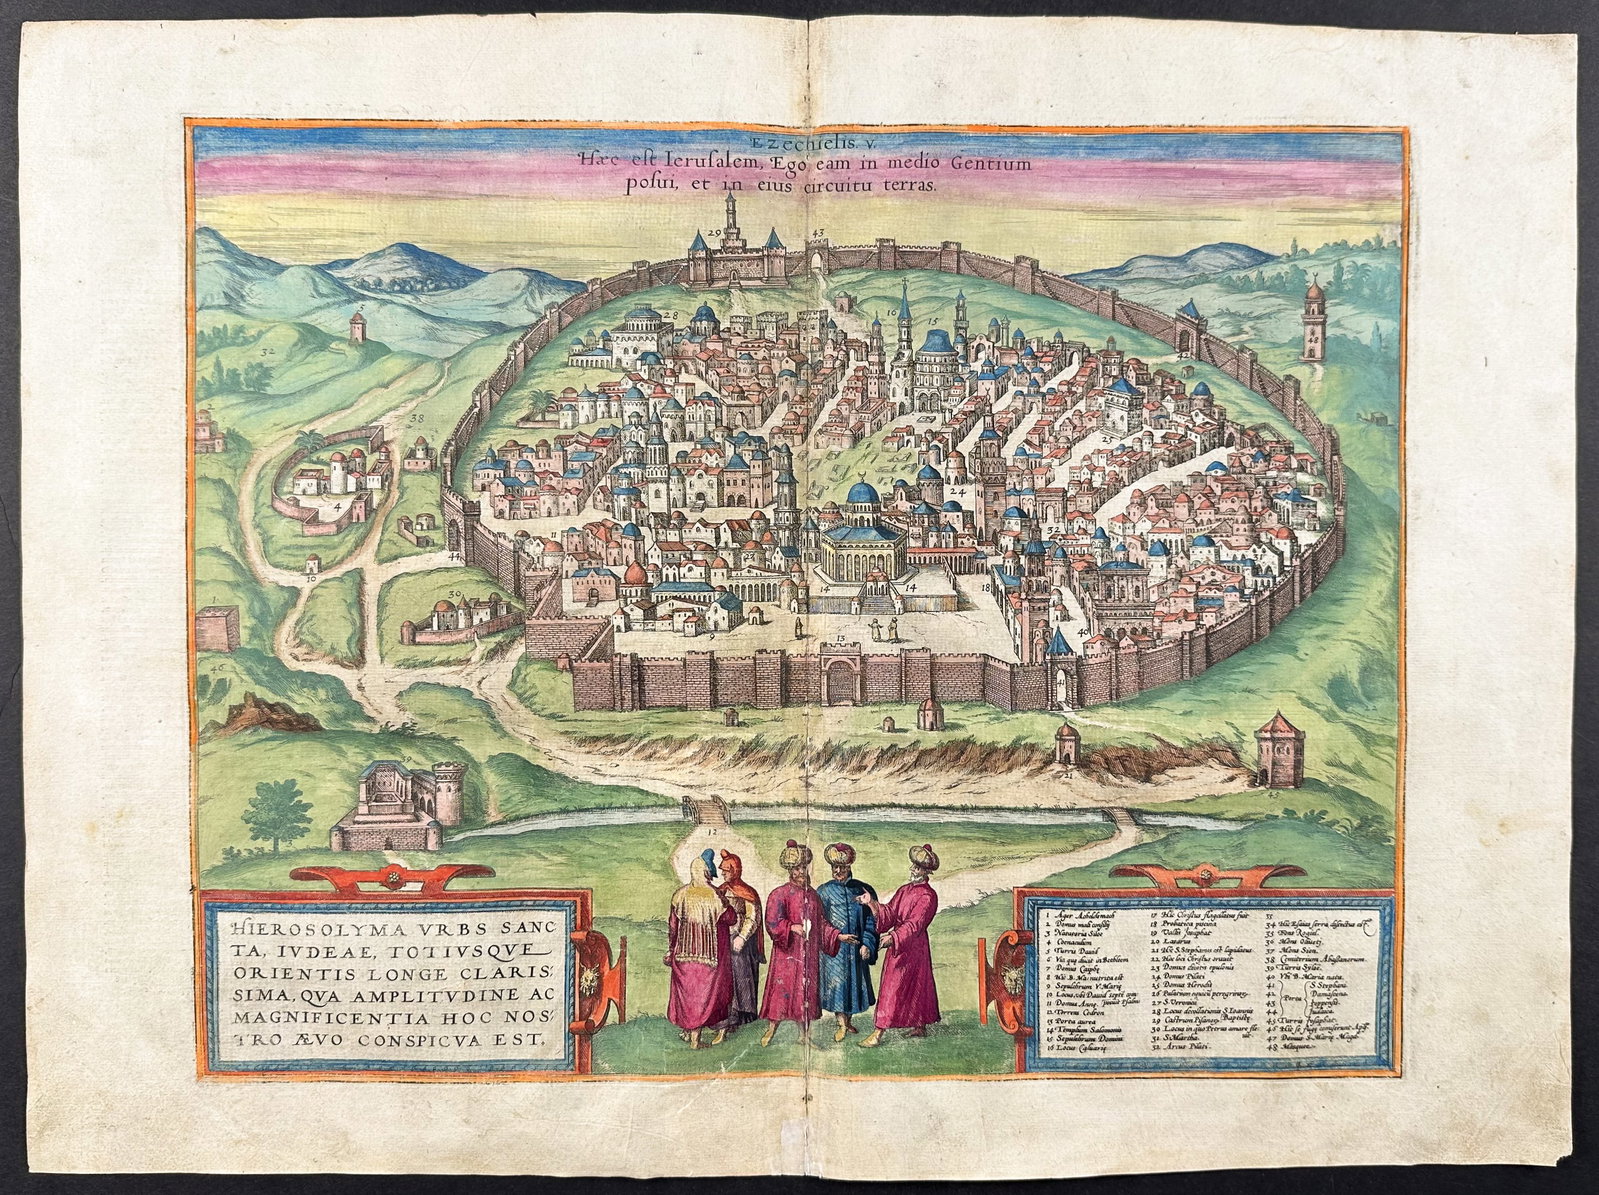 Ezechielis. V.
Hæc est Ierusalem, Ego eam in medio Gentium
posui, et in eius circuitu terras.
HIEROSOLYMA VRBS SANC
TA, IVDEAE, TOTIVSQVE
ORIENTIS LONGE CLARIS:
SIMA, QVA AMPLITVDINE AC
MAGNIFICENTIA HOC NOS:
TRO ÆVO CONSPICVA EST.
1 Ager Acheldemach
2 Domus mali consilij
3 Natatoria Siloe
4 Coenaculum
5 Turris David
6 Via quę ducit in Bethlem
7 Domus Caiphę
8 Hic B. Ma: nutrita est
9 Sepulchrum V. Marię
10 Locus, ubi David septē
11 Domus Annę
12 Torrens Cedron
13 Porta aurea
14 Templum Salomonis
15 Sepulchrum Domini
16 Locus Caluarię
17 Hic Christus flagellatus fuit
18 Probatica piscina
19 Vallis Josaphat
20 Lazarus
21 Hic S. Stephanus est lapidatus
22 Hoc loci Christus orauit
23 Domus divitis epulonis
24 Domus Pilati
25 Domus Herodis
26
27 S. Veronica
28 Locus S. Ioannis
29 Castrum Baptistę
30 Locus in quo Petrus amare fle
uit
31 S. Martha
32 Arcus Pilati
33
34 Hic Esaias serra dissectus est
35 Fons Rogiel
36 Mons Oliueti
37 Mons Sion
38 Cemiterium Abissianorum
39 Turris Syloę
40 Vbi B. Maria nata
41 S. Stephani
42 Porta Damascena
43
44 Judaica
45 Turris Josaphat
46 Hic se
47 Domus S. Marię Magd
48 Mosquee